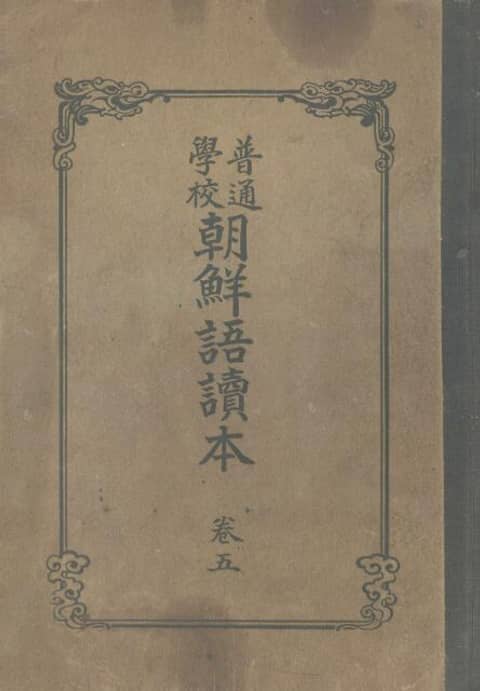 普通
學校
朝鮮語讀本
卷五